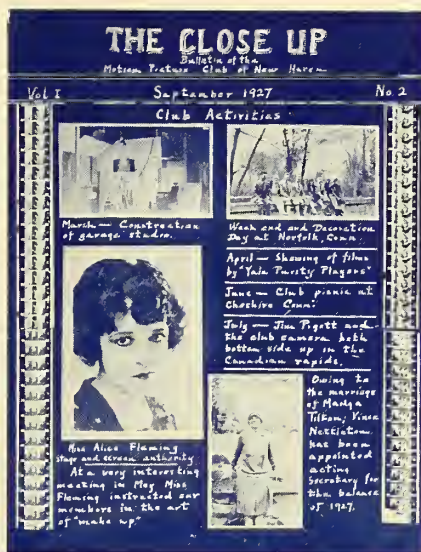 THE CLOSE UP
Bulletin of the
Motion Picture Club of New Haven
Vol I
September 1927
No. 2
Club Activities
March — Construction
of garage studio.
Week end and Decoration
Day at Norfolk, Conn.
April — Showing of films
by "Yale Purity Players"
June — Club picnic at
Cheshire Conn.
July — Jim Pigott and
the club camera both
bottom side up in the
Canadian rapids.
Miss Alice Fleming
stage and screen authority
At a very interesting
meeting in May Miss
Fleming instructed our
members in the art
of "make up."
Owing to
the marriage
of
has been
appointed
acting
Secretary for
the balance
of 1927.